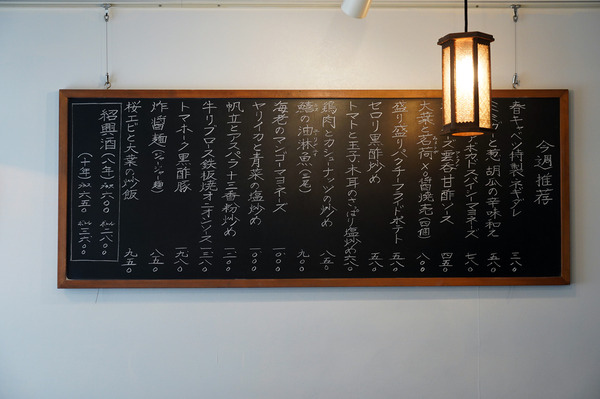 今週推荐
春キャベツ特製ネギダレ 三八〇
ミミガーと葱 胡瓜の辛味和え 五八〇
アボカドスパイシーマヨネーズ 七八〇
雲呑甘酢ソース 四五〇
大葉と茗荷 焼売(四個) 八〇〇
盛り盛りパクチーフライドポテト 五八〇
セロリ黒酢炒め 五八〇
トマトと玉子木耳のさっぱり塩炒め 六八〇
鶏肉とカシューナッツの炒め 八五〇
鱚の油淋魚(三尾) 九〇〇
海老のマンゴーマヨネーズ 一〇八〇
ヤリイカと青菜の塩炒め 一〇〇〇
帆立とアスパラ十三香粉炒め 一二〇〇
牛リブロース鉄板焼オニオンソース 一三八〇
トマホーク黒酢豚 一九八〇
炸醤麺(ジャージャー麺) 八五〇
桜エビと大葉の炒飯 九五〇
紹興酒(八年) グラス 六〇〇 ボトル 二八〇〇
(十年) グラス 六五〇 ボトル 三六〇〇